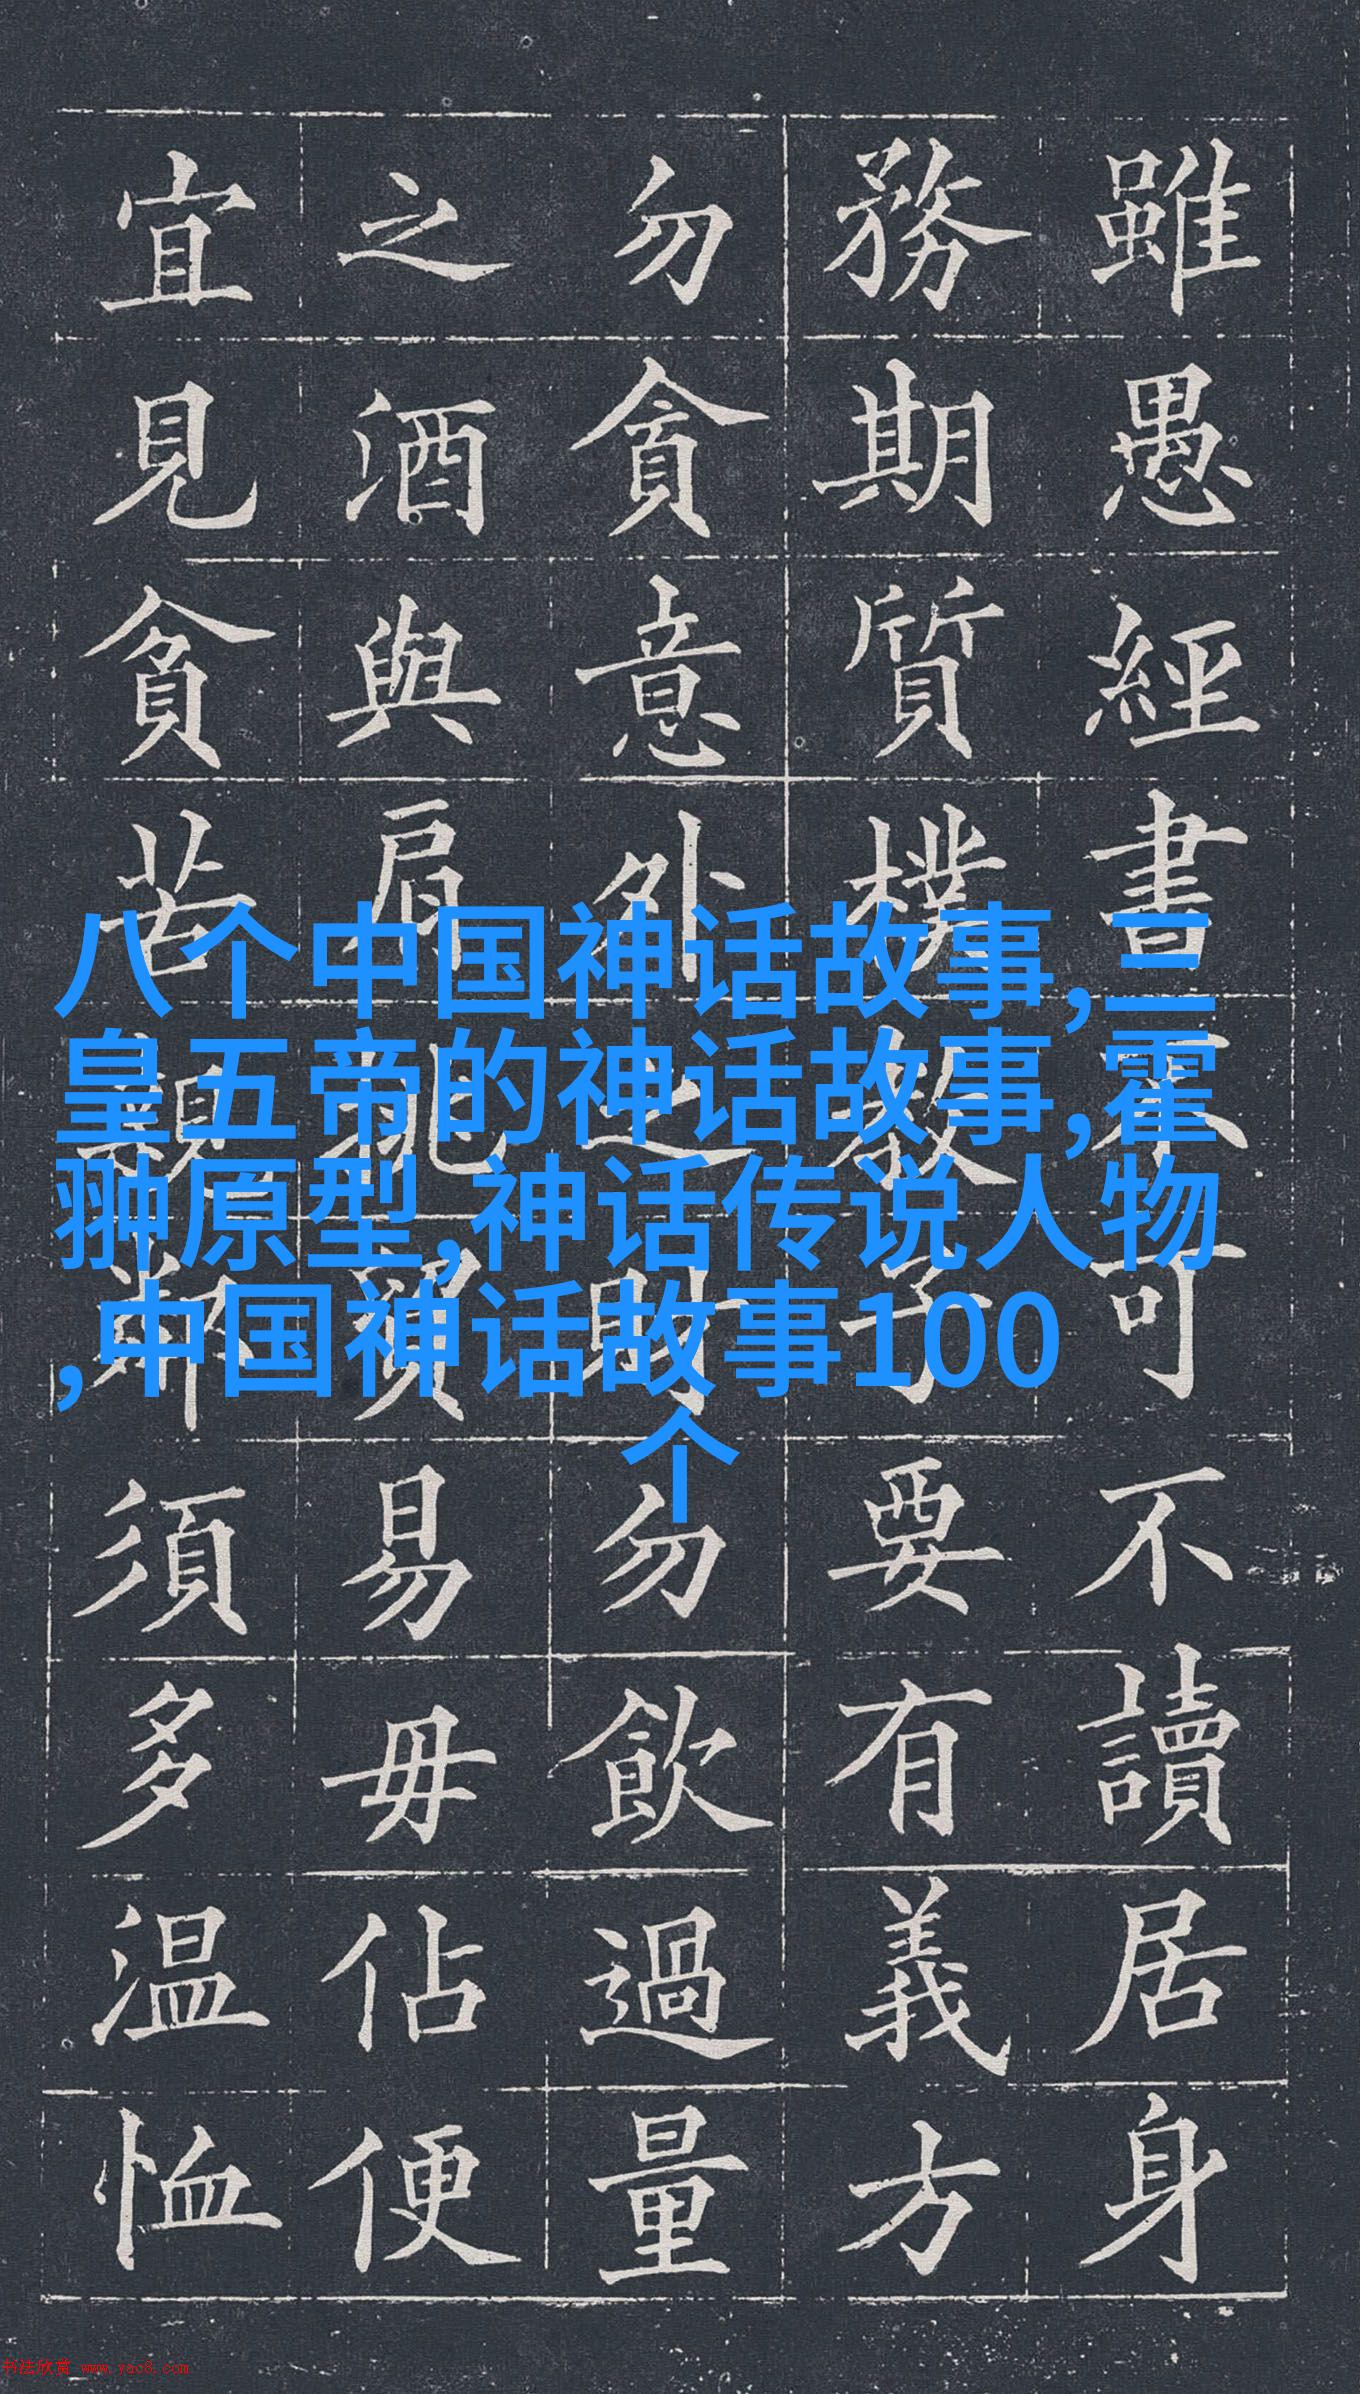 雖愚經書不可不讀居身
務期質樸教子要有義方
勿貪意外之財勿飲過量
之酒與肩挑貿易毋佔便
宜見貧苦親鄰須多温恤
八个中国神话故事,三
皇五帝的神话故事,霍
翀原型,神话传说人物
,中国神话故事100
个
书法欣赏 www.yac8.com